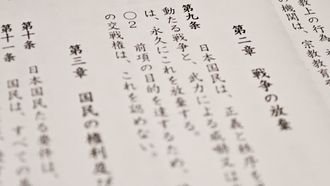 教上の行為
の機関は、
宗教教育
第二章　戦争の放棄
第九条　日本国民は、正義と秩序を
動たる戦争と、武力による威嚇又は
は、永久にこれを放棄する。
○２　前項の目的を達するため、
の交戦権は、これを認めない。
第三章　国民の権利及び
第十条　日本国民たる要件は、
第十一条　国民は、すべての